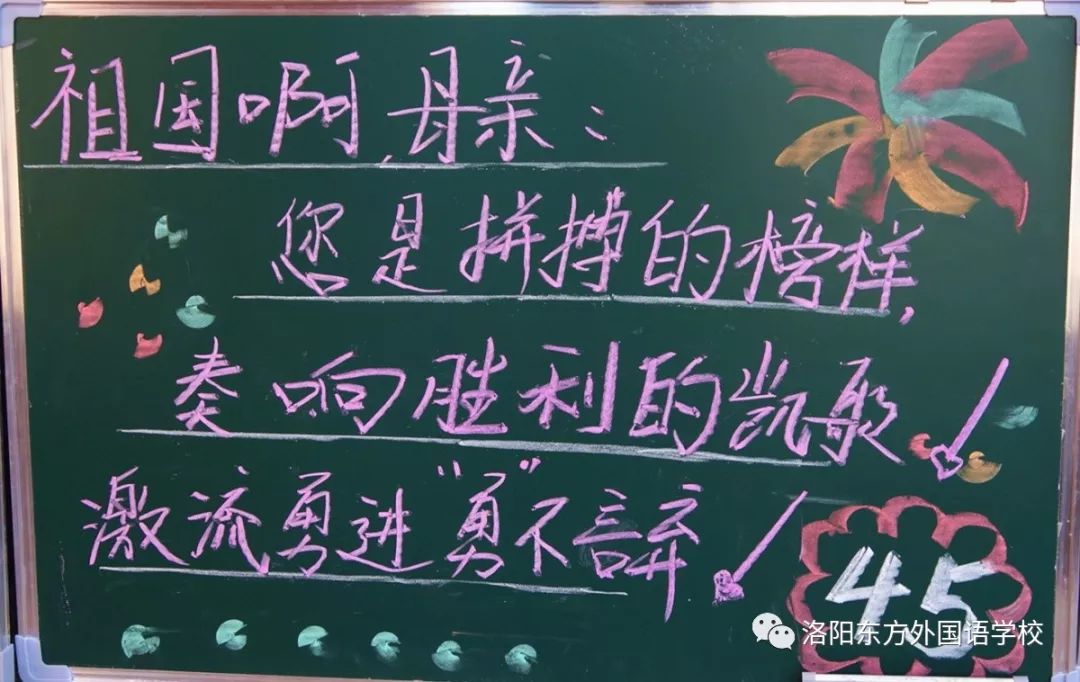 祖国啊,母亲:
您是拼搏的榜样,
奏响胜利的凯歌!
激流勇进"勇"不言弃!
4.5
洛阳东方外国语学校